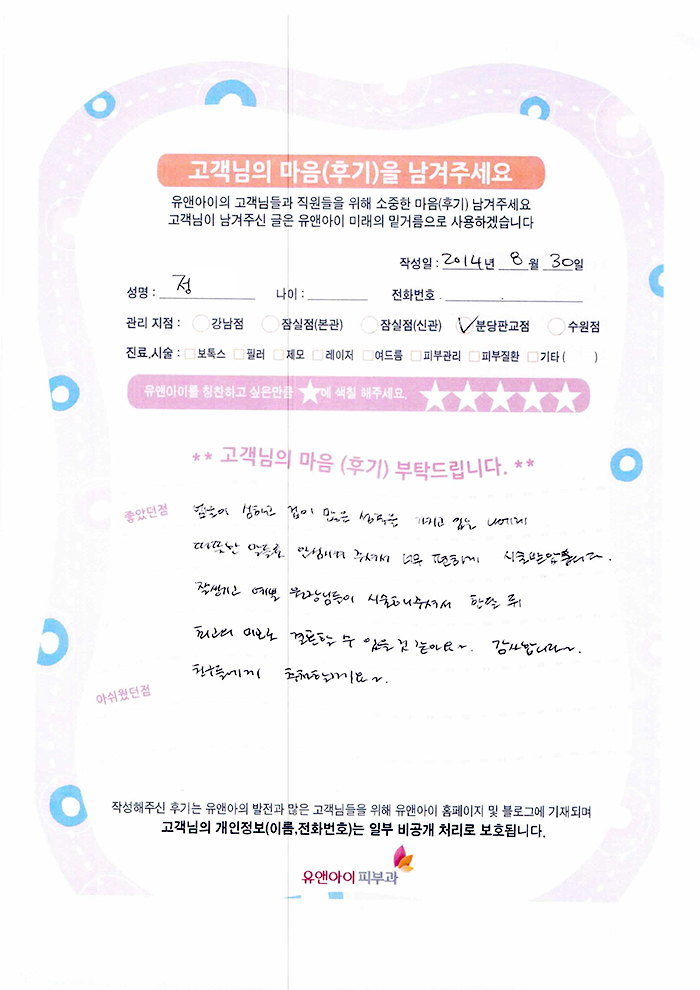 고객님의 마음(후기)을 남겨주세요
유앤아이의 고객님들과 직원들을 위해 소중한 마음(후기) 남겨주세요
고객님이 남겨주신 글은 유앤아이 미래의 밑거름으로 사용하겠습니다
작성일 : 2014년 8월 30일
성명 : 정 나이 : 전화번호 .
관리 지점 : 강남점 잠실점(본관) 잠실점(신관) 분당판교점 수원점
진료,시술 : 보톡스 필러 제모 레이저 여드름 피부관리 피부질환 기타 ( )
유앤아이를 칭찬하고 싶은만큼 ★에 색칠 해주세요. ★★★★★
** 고객님의 마음 (후기) 부탁드립니다. **
좋았던점
심하고 겁이 많은 성격을 가지고 있는 나에게
따뜻한 말들로 안심시켜 주셔서 너무 편하게 시술받았습니다.
잘생기고 예쁜 원장님들이 시술해주셔서 한달 뒤
최고의 미모로 결혼할 수 있을 것 같아요~. 감사합니다~.
친구들에게 추천할게요~.
아쉬웠던점
작성해주신 후기는 유앤아의 발전과 많은 고객님들을 위해 유앤아이 홈페이지 및 블로그에 기재되며
고객님의 개인정보(이름,전화번호)는 일부 비공개 처리로 보호됩니다.
유앤아이피부과